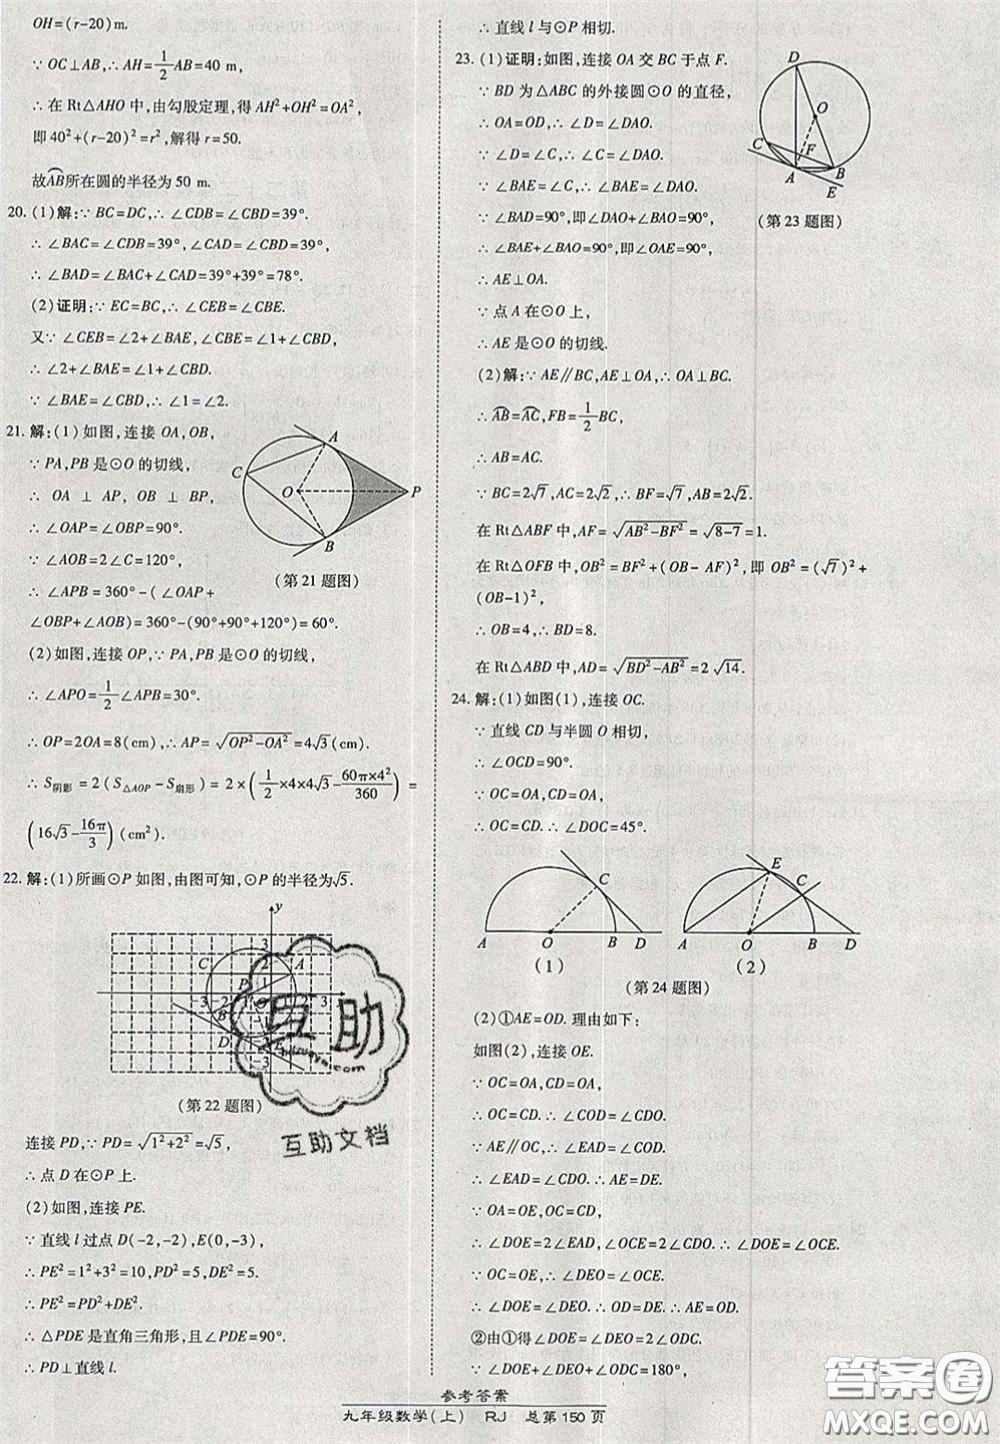 OH=(r-20)m.
∵ OC⊥AB,∴ AH=1/2AB=40 m,
∴ 在 Rt△AHO 中,由勾股定理,得 AH²+OH²=OA²,
即 40²+(r-20)²=r²,解得 r=50.
故AB所在圆的半径为 50 m.
20. (1)解:∵ BC=DC,∴ ∠CDB=∠CBD=39°.
∴ ∠BAC=∠CDB=39°,∠CAD=∠CBD=39°,
∴ ∠BAD=∠BAC+∠CAD=39°+39°=78°.
(2)证明:∵ EC=BC,∴ ∠CEB=∠CBE.
又∵ ∠CEB=∠2+∠BAE,∠CBE=∠1+∠CBD,
∴ ∠2+∠BAE=∠1+∠CBD.
∵ ∠BAE=∠CBD,∴ ∠1=∠2.
21. 解:(1)如图,连接 OA,OB,
∵ PA,PB 是⊙O 的切线,
∴ OA ⊥ AP, OB ⊥ BP,
∴ ∠OAP=∠OBP=90°.
∵ ∠AOB=2∠C=120°,
∴ ∠APB = 360°-(∠OAP+
∠OBP+∠AOB)=360°-(90°+90°+120°)=60°.
A
C
O
P
B
(第 21 题图)
(2)如图,连接 OP,∵ PA,PB 是⊙O 的切线,
∴ ∠APO=1/2∠APB=30°.
∴ OP=2OA=8(cm),∴ AP=√(OP²-OA²)=4√3(cm).
∴ S阴影=2(S△AOP-S扇形)=2×(1/2×4×4√3-60π×4²/360)=
(16√3-16π/3)(cm²).
22. 解:(1)所画⊙P 如图,由图可知,⊙P 的半径为√5.
y
C
A
P
B
D
E
(第 22 题图)
连接 PD,∵ PD=√(1²+2²)=√5,
∴ 点 D 在⊙P 上.
(2)如图,连接 PE.
∵ 直线 l 过点 D(-2,-2),E(0,-3),
∴ PE²=1²+3²=10,PD²=5,DE²=5.
∴ PE²=PD²+DE².
∴ △PDE 是直角三角形,且∠PDE=90°.
∴ PD⊥直线 l.
∴ 直线 l 与⊙P 相切.
23. (1)证明:如图,连接 OA 交 BC 于点 F.
∵ BD 为△ABC 的外接圆⊙O 的直径,
∴ OA=OD,∴ ∠D=∠DAO.
∵ ∠D=∠C,∴ ∠C=∠DAO.
∵ ∠BAE=∠C,∴ ∠BAE=∠DAO.
∵ ∠BAD=90°,即∠DAO+∠BAO=90°,
∴ ∠BAE+∠BAO=90°,即∠OAE=90°.
∴ AE⊥OA.
∵ 点 A 在⊙O 上,
∴ AE 是⊙O 的切线.
D
O
C
F
A
B
E
(第 23 题图)
(2)解:∵ AE∥BC,AE⊥OA,∴ OA⊥BC.
∴ AB=AC,FB=1/2BC,
∴ AB=AC.
∵ BC=2√7,AC=2√2,∴ BF=√7,AB=2√2.
在 Rt△ABF 中,AF=√(AB²-BF²)=√(8-7)=1.
在 Rt△OFB 中,OB²=BF²+(OB-AF)²,即 OB²=(√7)²+
(OB-1)²,
∴ OB=4,∴ BD=8.
在 Rt△ABD 中,AD=√(BD²-AB²)=2√14.
24. 解:(1)如图(1),连接 OC.
∵ 直线 CD 与半圆 O 相切,
∴ ∠OCD=90°.
∵ OC=OA,CD=OA,
∴ OC=CD.∴ ∠DOC=45°.
C
A O B D
(1)
E
C
A O B D
(2)
(第 24 题图)
(2)①AE=OD. 理由如下:
如图(2),连接 OE.
∵ OC=OA,CD=OA,
∴ OC=CD.∴ ∠COD=∠CDO.
∵ AE∥OC,∴ ∠EAD=∠COD.
∴ ∠EAD=∠CDO.∴ AE=DE.
∵ OA=OE,OC=CD,
∴ ∠DOE=2∠EAD,∠OCE=2∠CDO.
∴ ∠DOE=∠OCE.
∵ OC=OE,∴ ∠DEO=∠OCE.
∴ ∠DOE=∠DEO.∴ OD=DE.∴ AE=OD.
②由①得∠DOE=∠DEO=2∠ODC.
∵ ∠DOE+∠DEO+∠ODC=180°,
互助
互助文档
参考答案
九年级数学(上) RJ 总第150页
答案圈
MXQE.COM